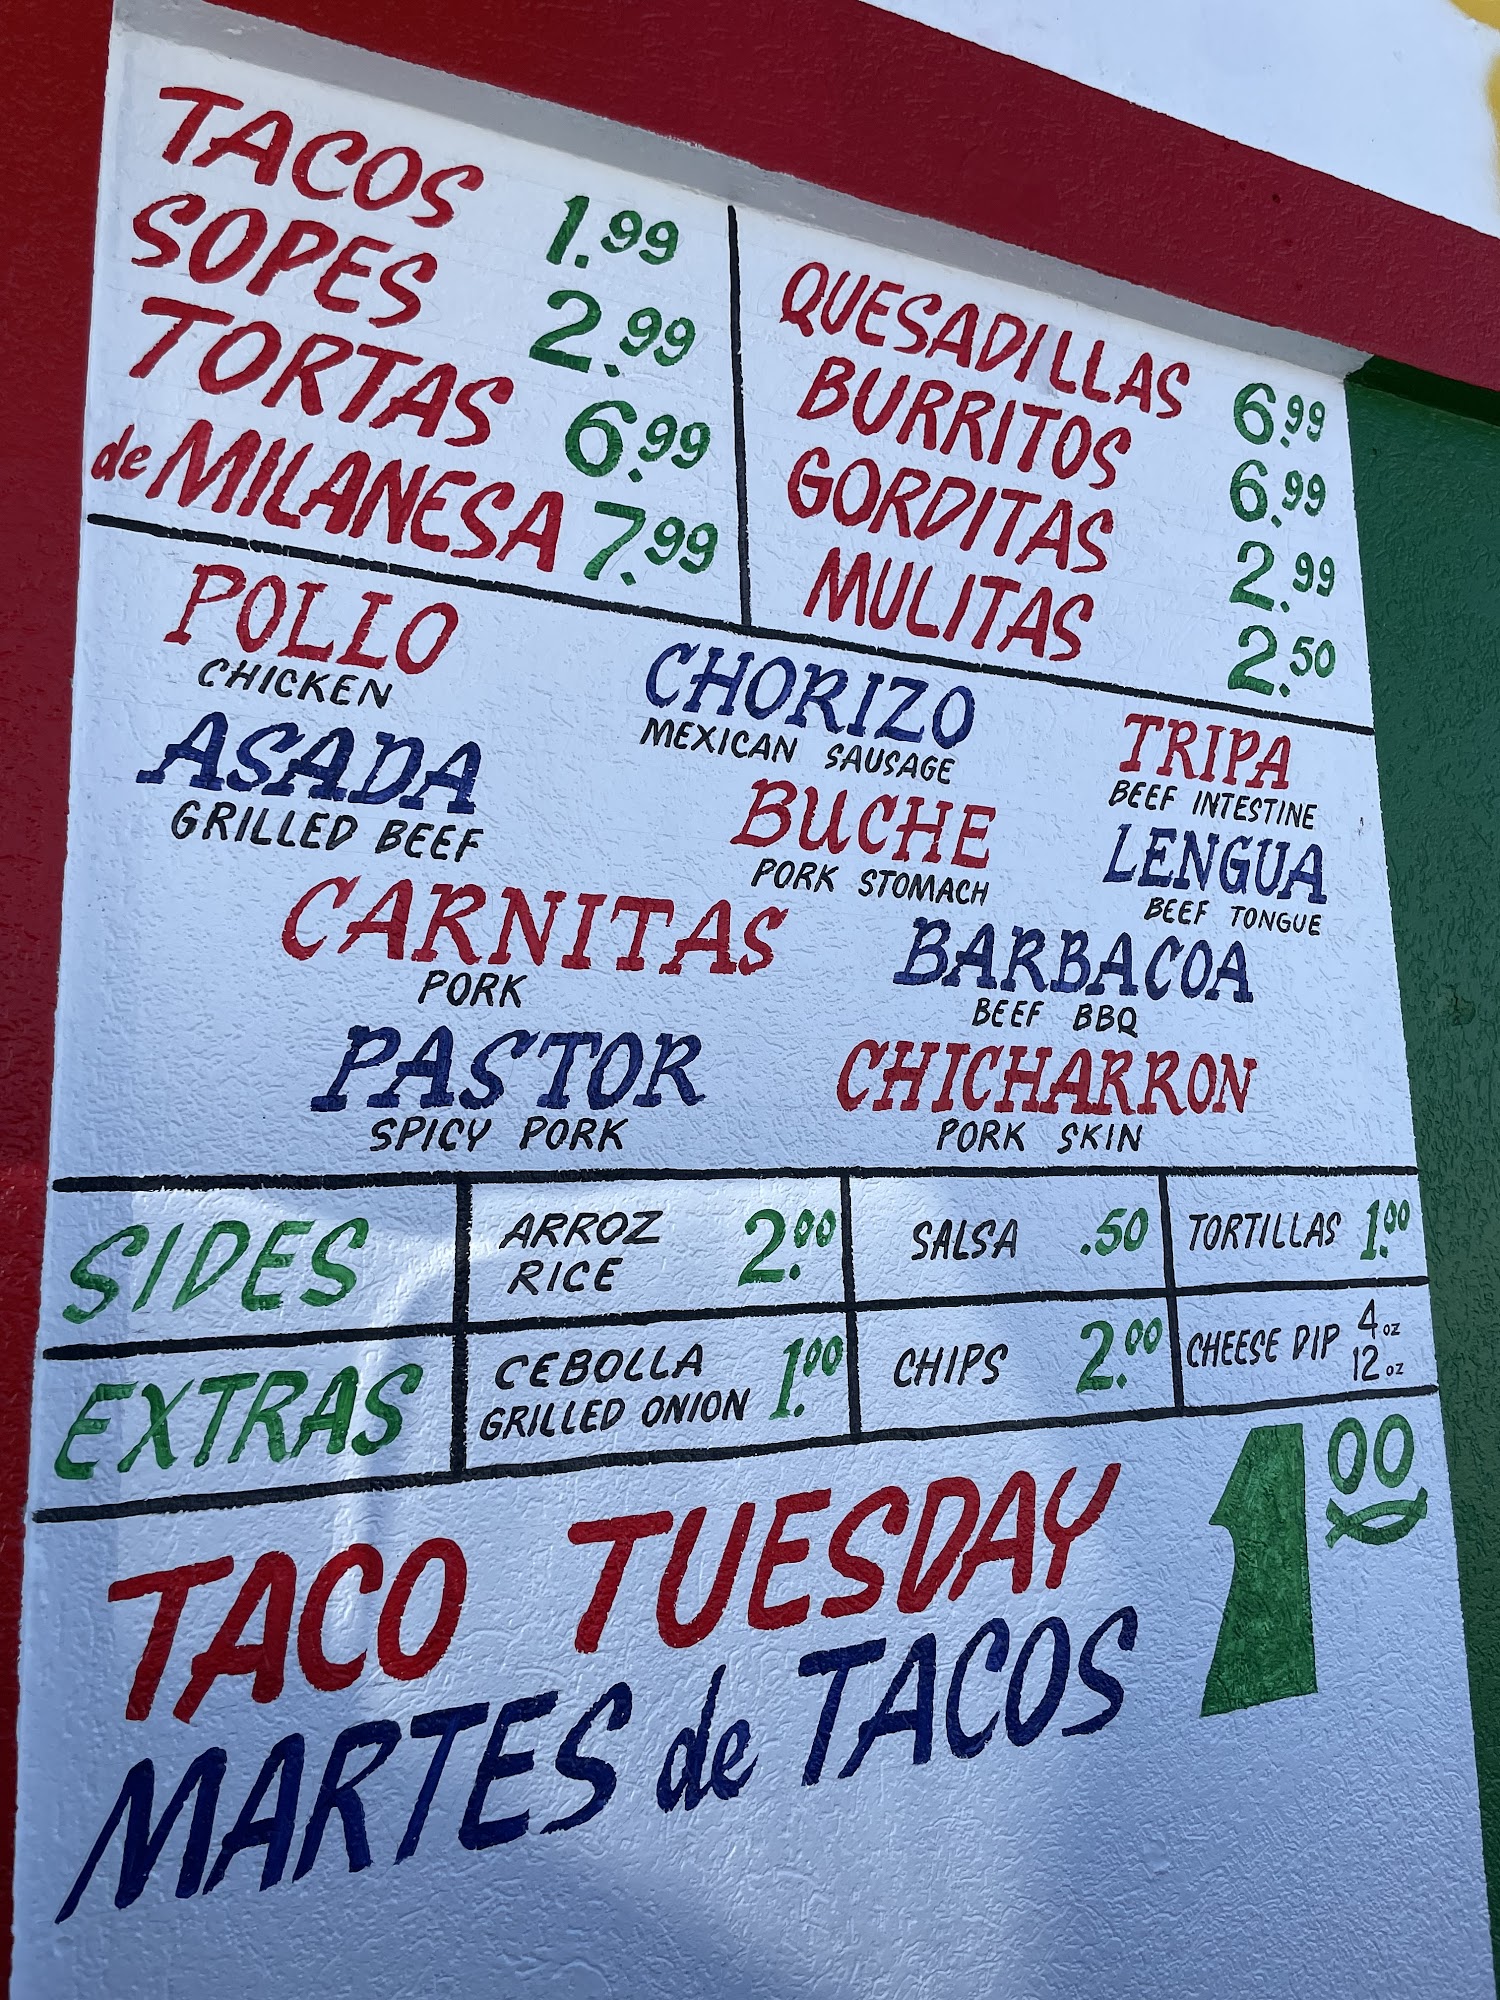 TACOS 1.99
SOPES 2.99
TORTAS 6.99
de MILANESA 7.99
QUESADILLAS 6.99
BURRITOS 6.99
GORDITAS 2.99
MULITAS 2.50
POLLO
CHICKEN
ASADA
GRILLED BEEF
CARNITAS
PORK
PASTOR
SPICY PORK
CHORIZO
MEXICAN SAUSAGE
BUCHE
PORK STOMACH
BARBACOA
BEEF BBQ
CHICHARRON
PORK SKIN
TRIPA
BEEF INTESTINE
LENGUA
BEEF TONGUE
SIDES
ARROZ 2.00
RICE
SALSA .50
TORTILLAS 1.00
EXTRAS
CEBOLLA 1.00
GRILLED ONION
CHIPS 2.00
CHEESE DIP 4 oz
12 oz
TACO TUESDAY 1.00
MARTES de TACOS